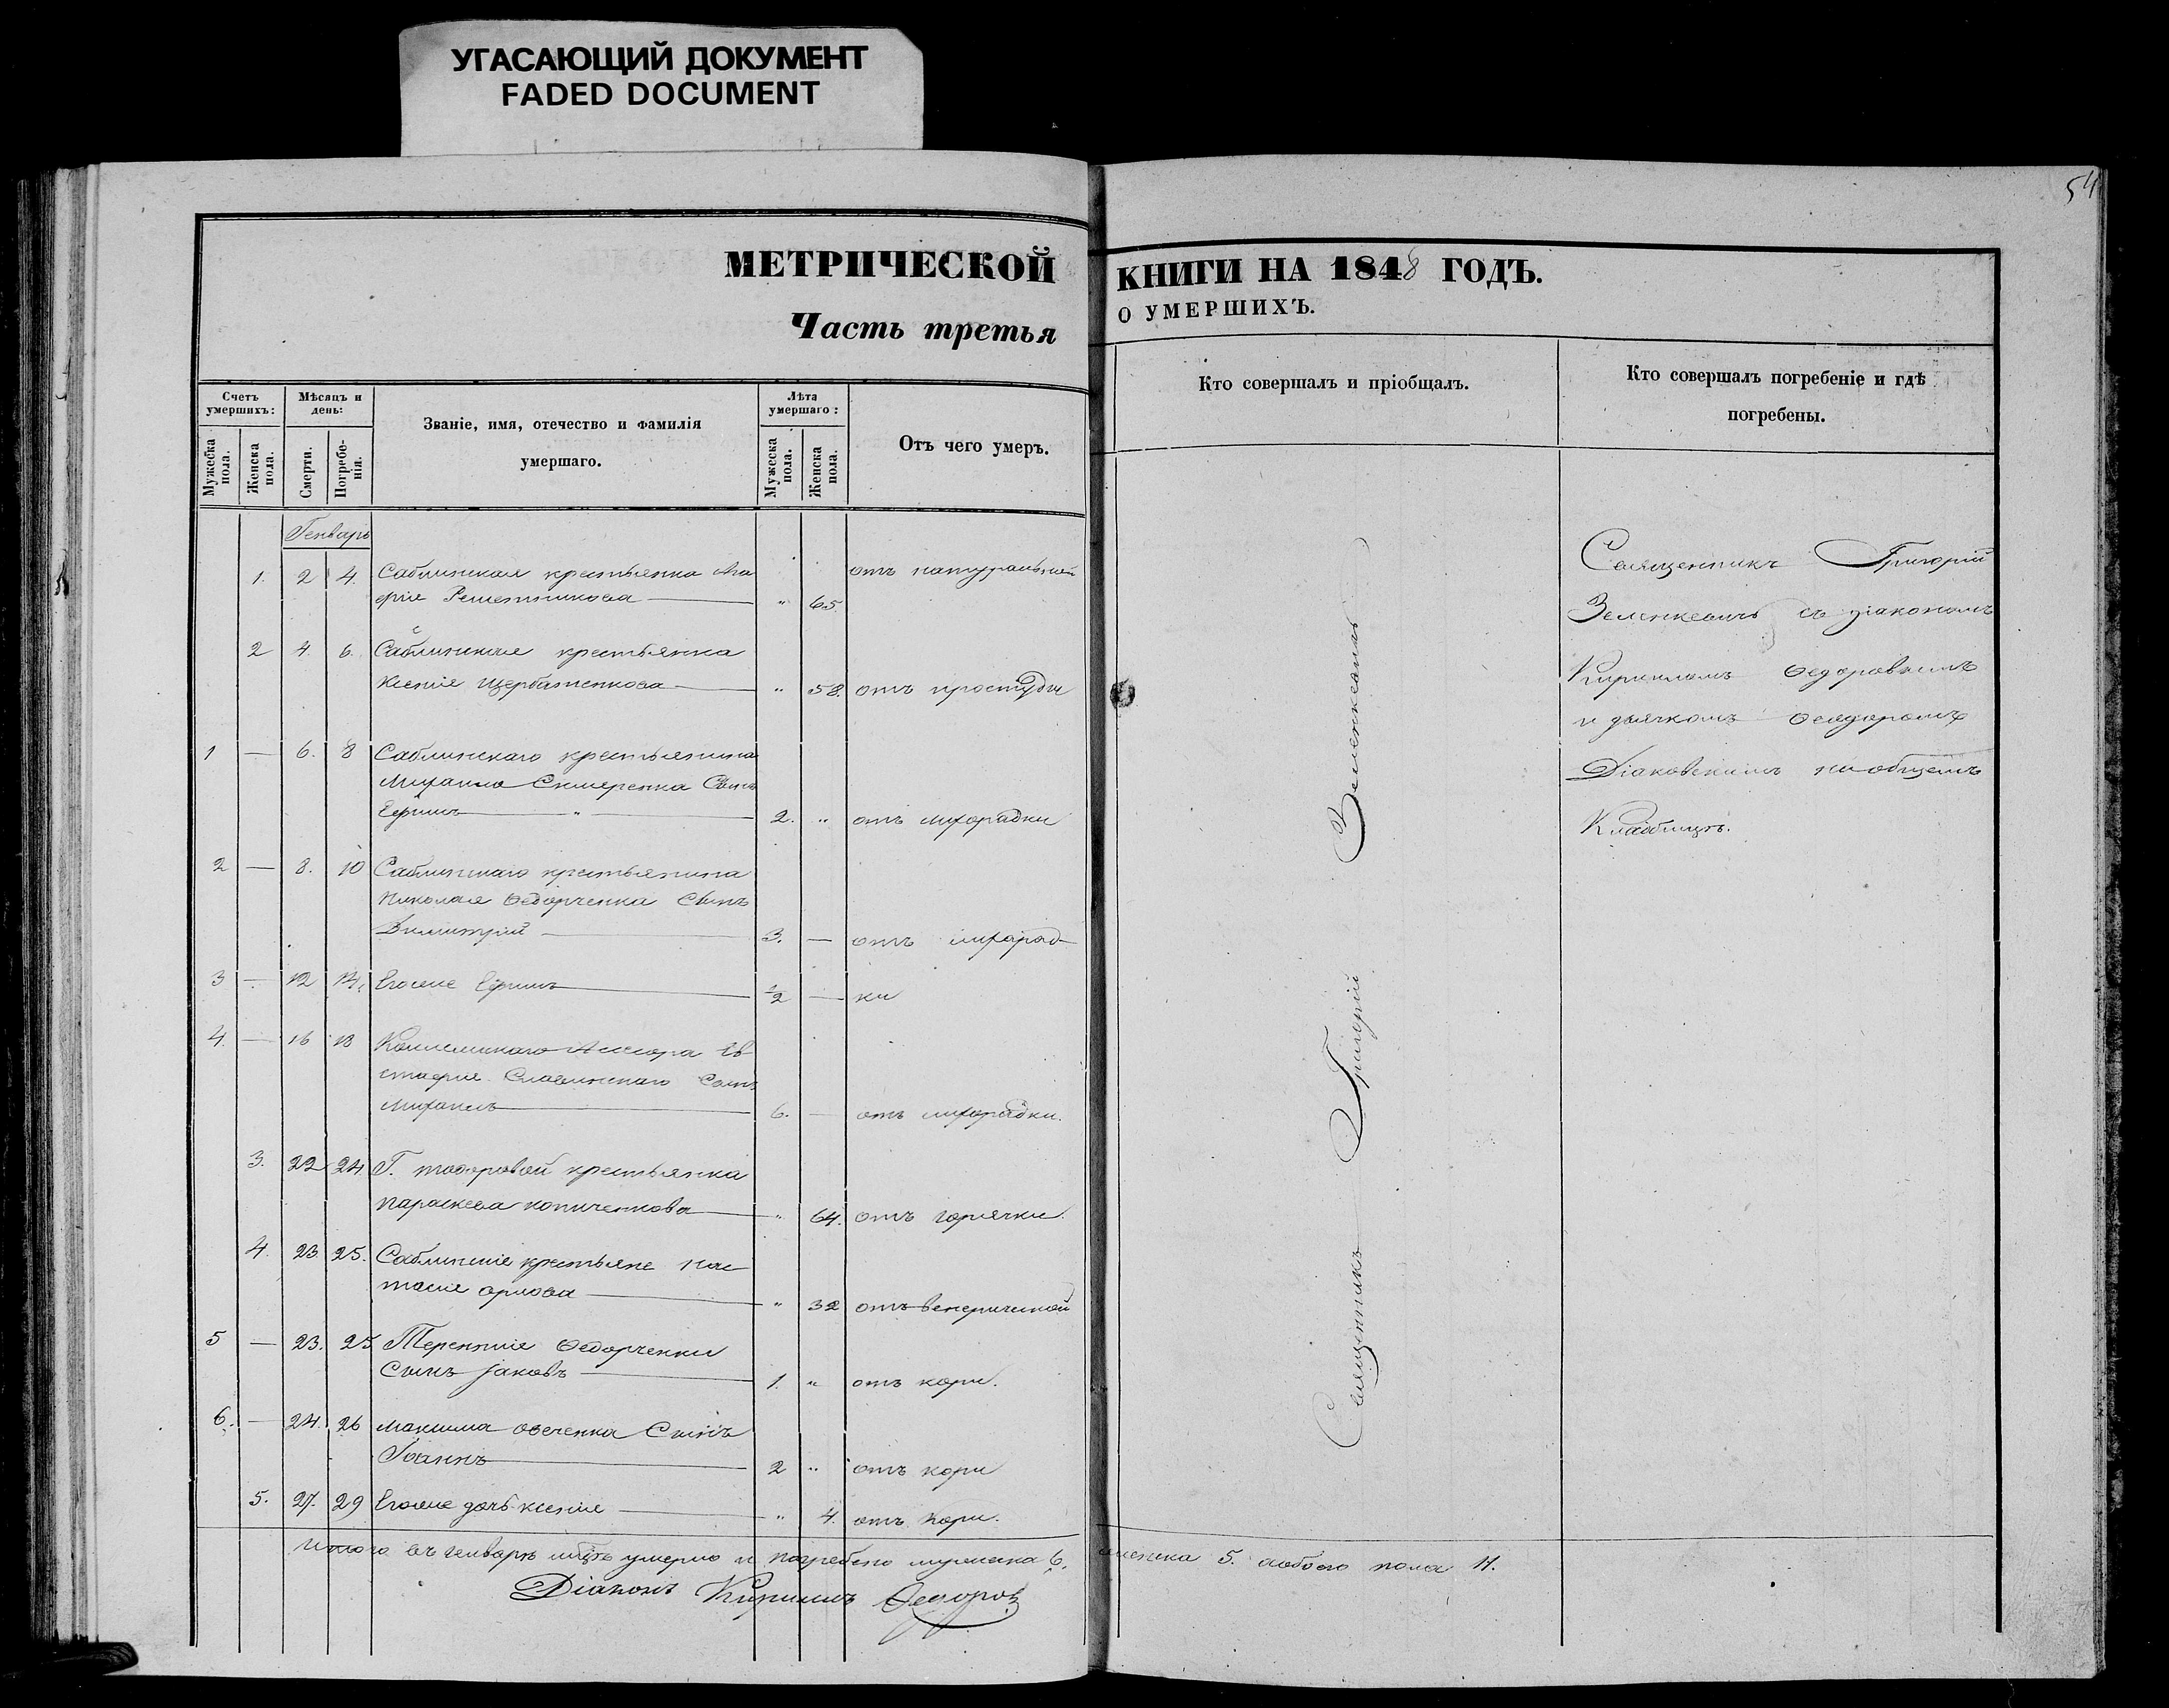 УГАСАЮЩИЙ ДОКУМЕНТ
FADED DOCUMENT
54
МЕТРИЧЕСКОЙ КНИГИ НА 1848 ГОДЪ.
Часть третья О УМЕРШИХЪ.
Счетъ умершихъ:
Мужеска пола.
Женска пола.
Мѣсяцъ и день:
Смерти.
Погребенія.
Званіе, имя, отечество и фамилія
умершаго.
Лѣта умершаго:
Мужеска пола.
Женска пола.
Отъ чего умеръ.
Кто совершалъ и пріобщалъ.
Кто совершалъ погребеніе и гдѣ
погребены.
Генварь
1. 2 4. Саблинская крестьянка Ма отъ натуральной
рія Решетникова " 65.
2 4. 6. Саблинская крестьянка
Ксенія Щербатенкова " 58. отъ простуды
1 — 6. 8 Саблинскаго крестьянина
Михаила Сын
Ефимъ " 2. " отъ лихорадки
2 — 8. 10 Саблинскаго крестьянина
Николая Ѳедорченка Сынъ
Димитрій 3. — отъ лихорад-
3 — 12 14. Егоже Ефимъ 1/2 — ки
4. — 16 18 Коллежскаго Ассесора Ев
стафія Славинскаго Сынъ
Михаилъ 6. — отъ лихорадки.
3. 22 24. Г. крестьянка
Параскева " 64. отъ горячки.
4. 23. 25. Саблинскіе крестьяне Нас
тасія Орлова " 32 отъ венерической
5 — 23. 25 Терентія Ѳедорченки
Сынъ Іаковъ 1. " отъ кори.
6. — 24. 26 Максима Овеченка Сынъ
Іоаннъ 2 " отъ кори
5. 27. 29 Егоже дочь Ксенія " 4. отъ кори.
Итого въ генварѣ мцѣ умерло и погребено мужеска 6. женска 5. а обоего пола 11.
Діаконъ Кириллъ Ѳедоров
Священникъ Григорій Зеленкевичъ
Священникъ Григорій
Зеленкевичъ съ діакономъ
Кирилломъ Ѳедоровымъ
и дьячкомъ Ѳеодоромъ
Діаковскимъ на общемъ
Кладбищѣ.